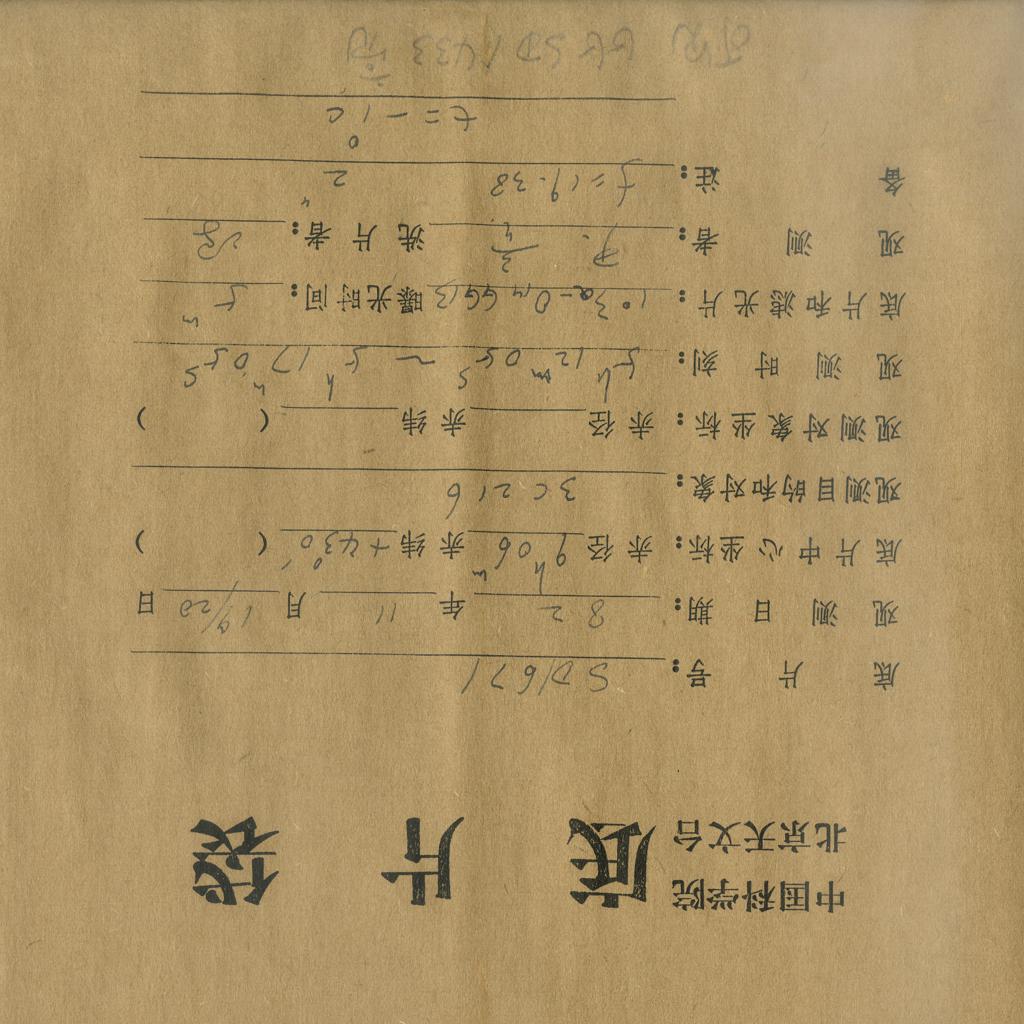 中国科学院
北京天文台
底片袋
底片号: SD1671
观测日期: 82年11月19/20日
底片中心坐标: 赤径 9h06m 赤纬 +43°0′ ( )
观测目的和对象: 3C216
观测对象坐标: 赤径 赤纬 ( )
观测时刻: 5h12m05s ~ 5h17m05s
底片和滤光片: 103a-O, GG13 曝光时间: 5m
观测者: 洗片者:
备注: f=19.38 2
t=-1C
SD1433